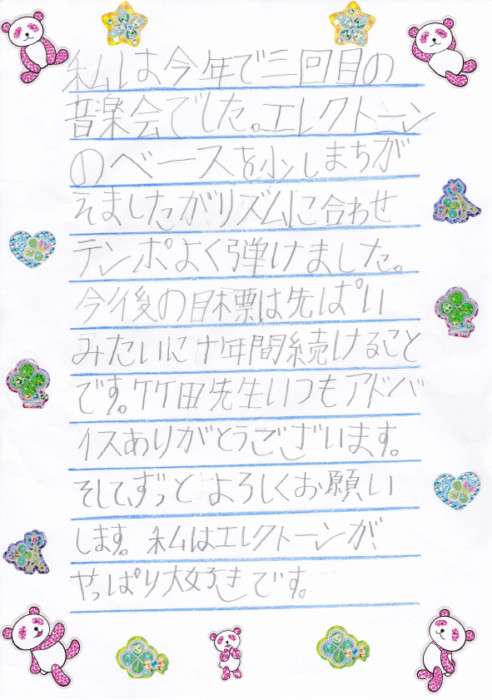 私は今年で三回目の
音楽会でした。エレクトーン
のベースを少しまちが
えましたがリズムに合わせ
テンポよく弾けました。
今後の目標は先ぱい
みたいに十年間続けること
です。竹田先生いつもアドバ
イスありがとうございます。
そして、ずっとよろしくお願い
します。私はエレクトーンが、
やっぱり大好きです。